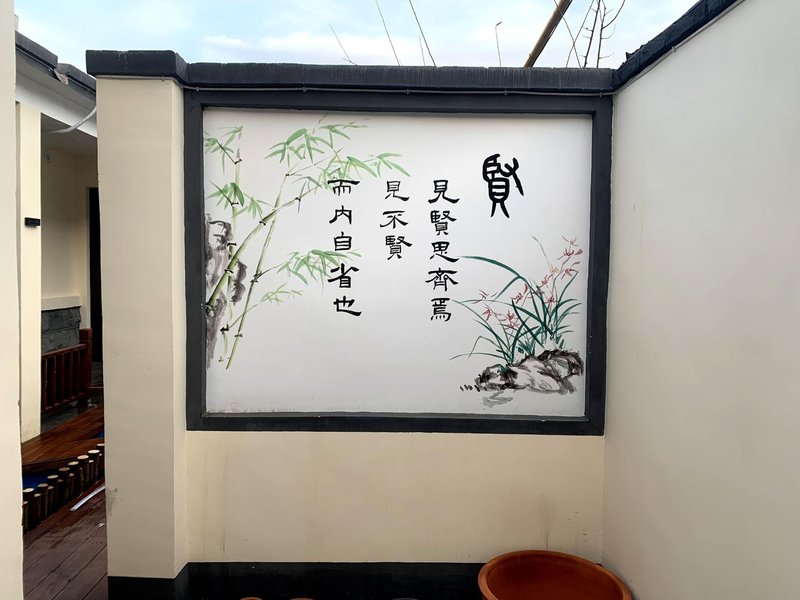 賢
見賢思齊焉
見不賢
而内自省也